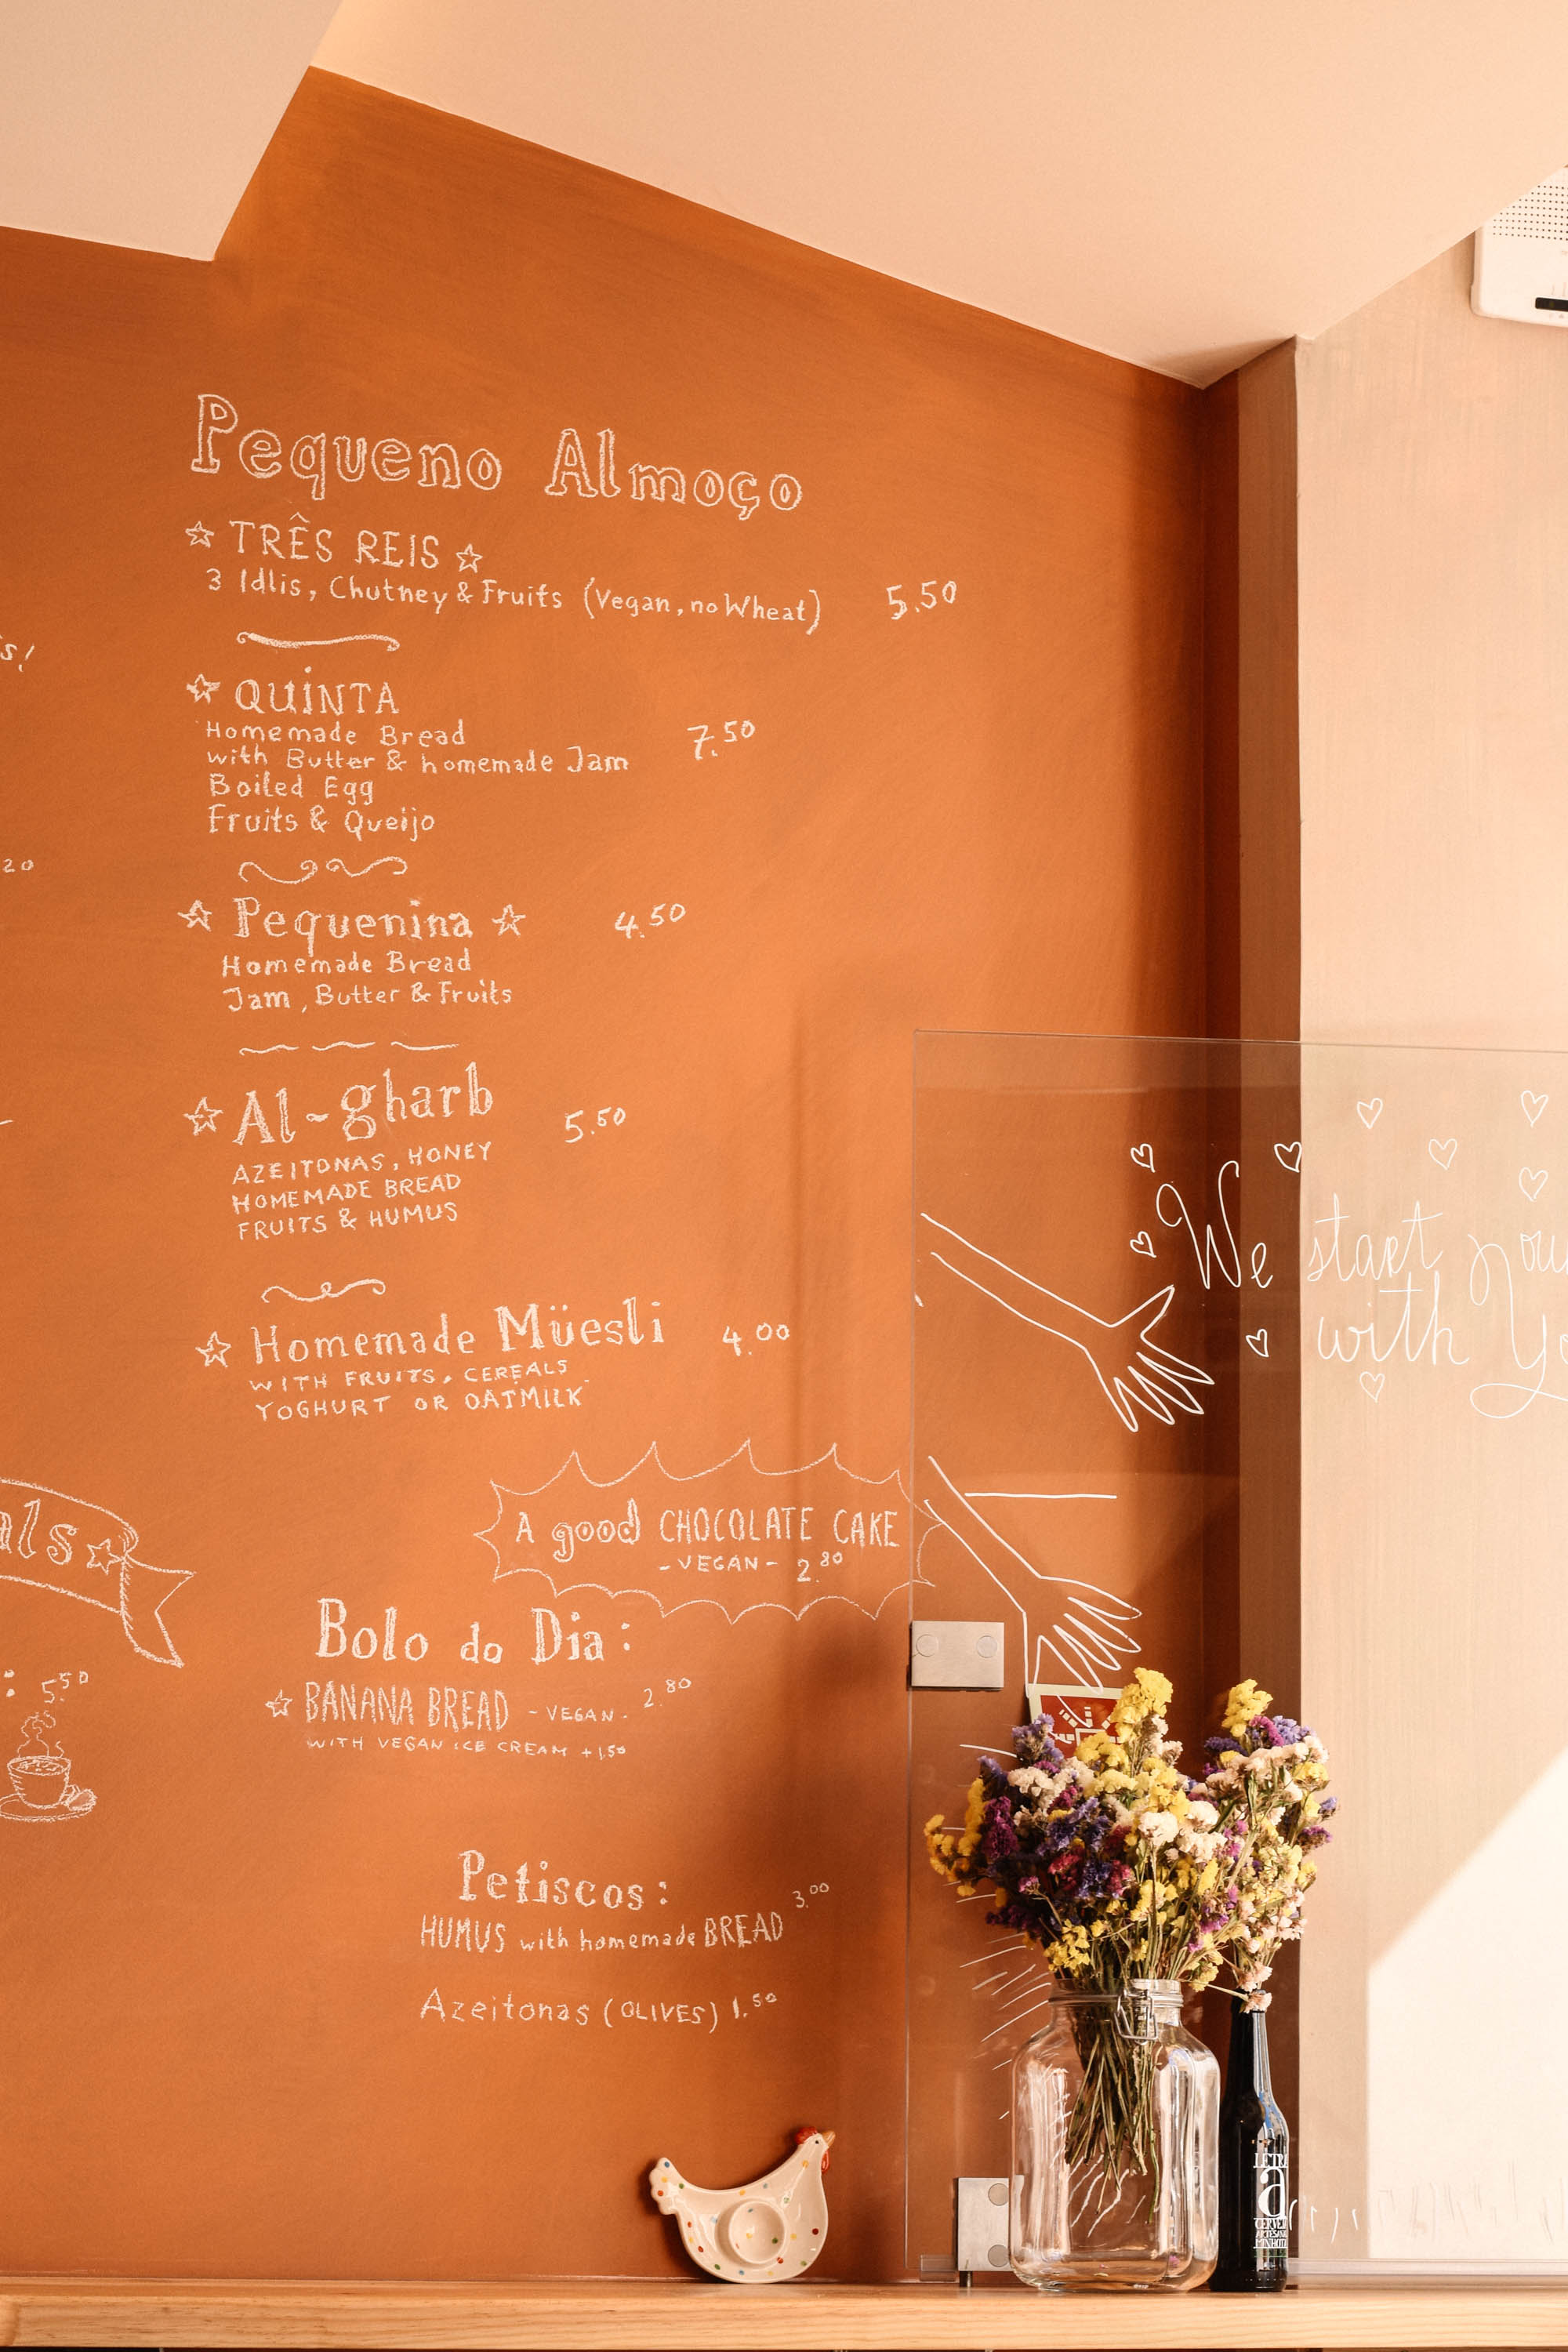 Pequeno Almoço
TRÊS REIS
3 Idlis, Chutney & Fruits (Vegan, no Wheat) 5.50
QUINTA
Homemade Bread
with Butter & homemade Jam 7.50
Boiled Egg
Fruits & Queijo
Pequenina 4.50
Homemade Bread
Jam, Butter & Fruits
Al-gharb 5.50
AZEITONAS, HONEY
HOMEMADE BREAD
FRUITS & HUMUS
Homemade Müesli 4.00
WITH FRUITS, CEREALS
YOGHURT OR OATMILK
A good CHOCOLATE CAKE
-VEGAN- 2.80
Bolo do Dia:
BANANA BREAD -VEGAN- 2.80
WITH VEGAN ICE CREAM +1.50
Petiscos:
HUMUS with homemade BREAD 3.00
Azeitonas (OLIVES) 1.50
s!
20
als
: 5.50
We start you
with Yo
LETRA
a